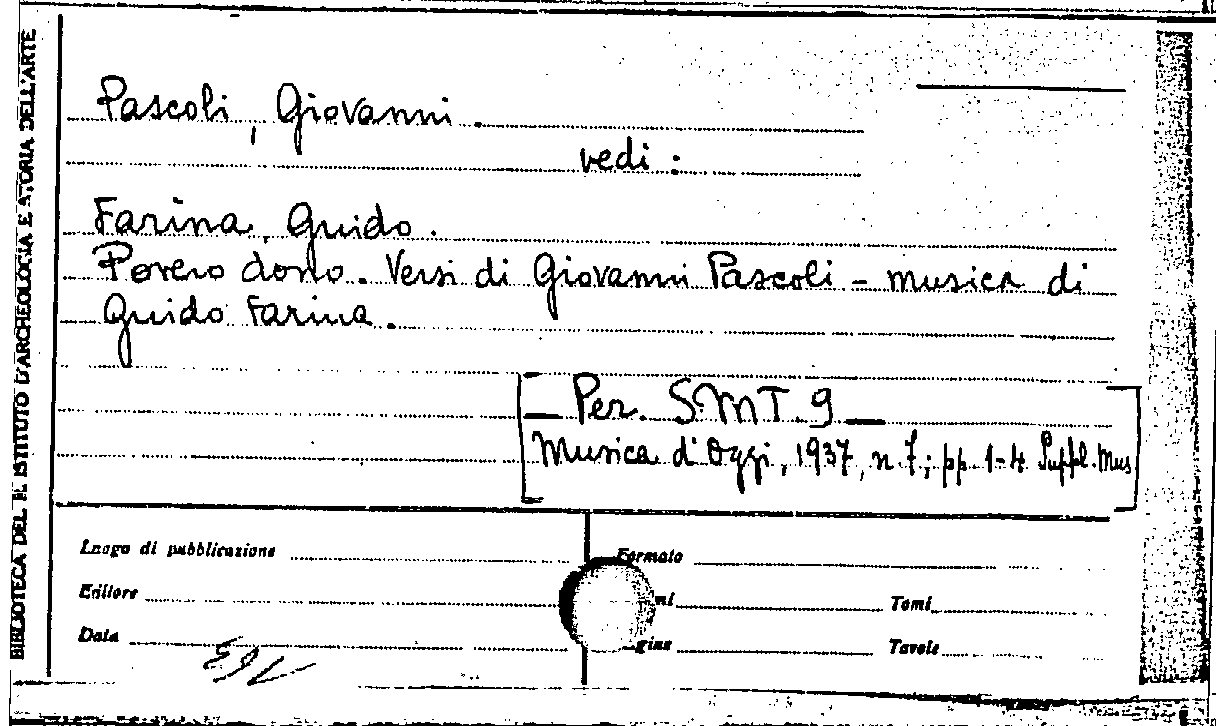 BIBLIOTECA DEL R. ISTITUTO D'ARCHEOLOGIA E STORIA DELL'ARTE
Pascoli, Giovanni.
vedi:
Farina, Guido.
Povero dono. Versi di Giovanni Pascoli - musica di
Guido Farina.
Per. S.M.T. 9
Musica d'Oggi, 1937, n. 7; pp. 1-4 Suppl. Mus
Luogo di pubblicazione
Formato
Editore
Tomi
Data
Tavole